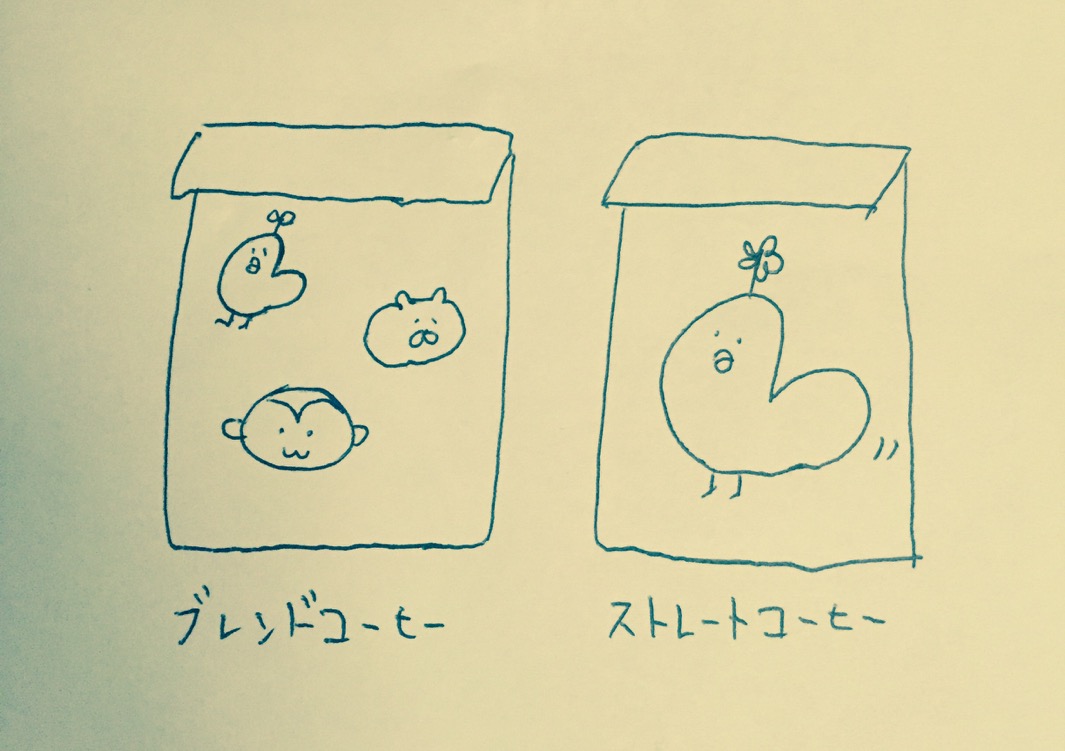 ブレンドコーヒー
ストレートコーヒー